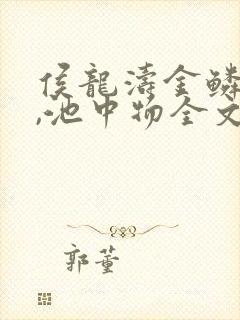 侯龍濤金鱗
,池中物全文
郭董